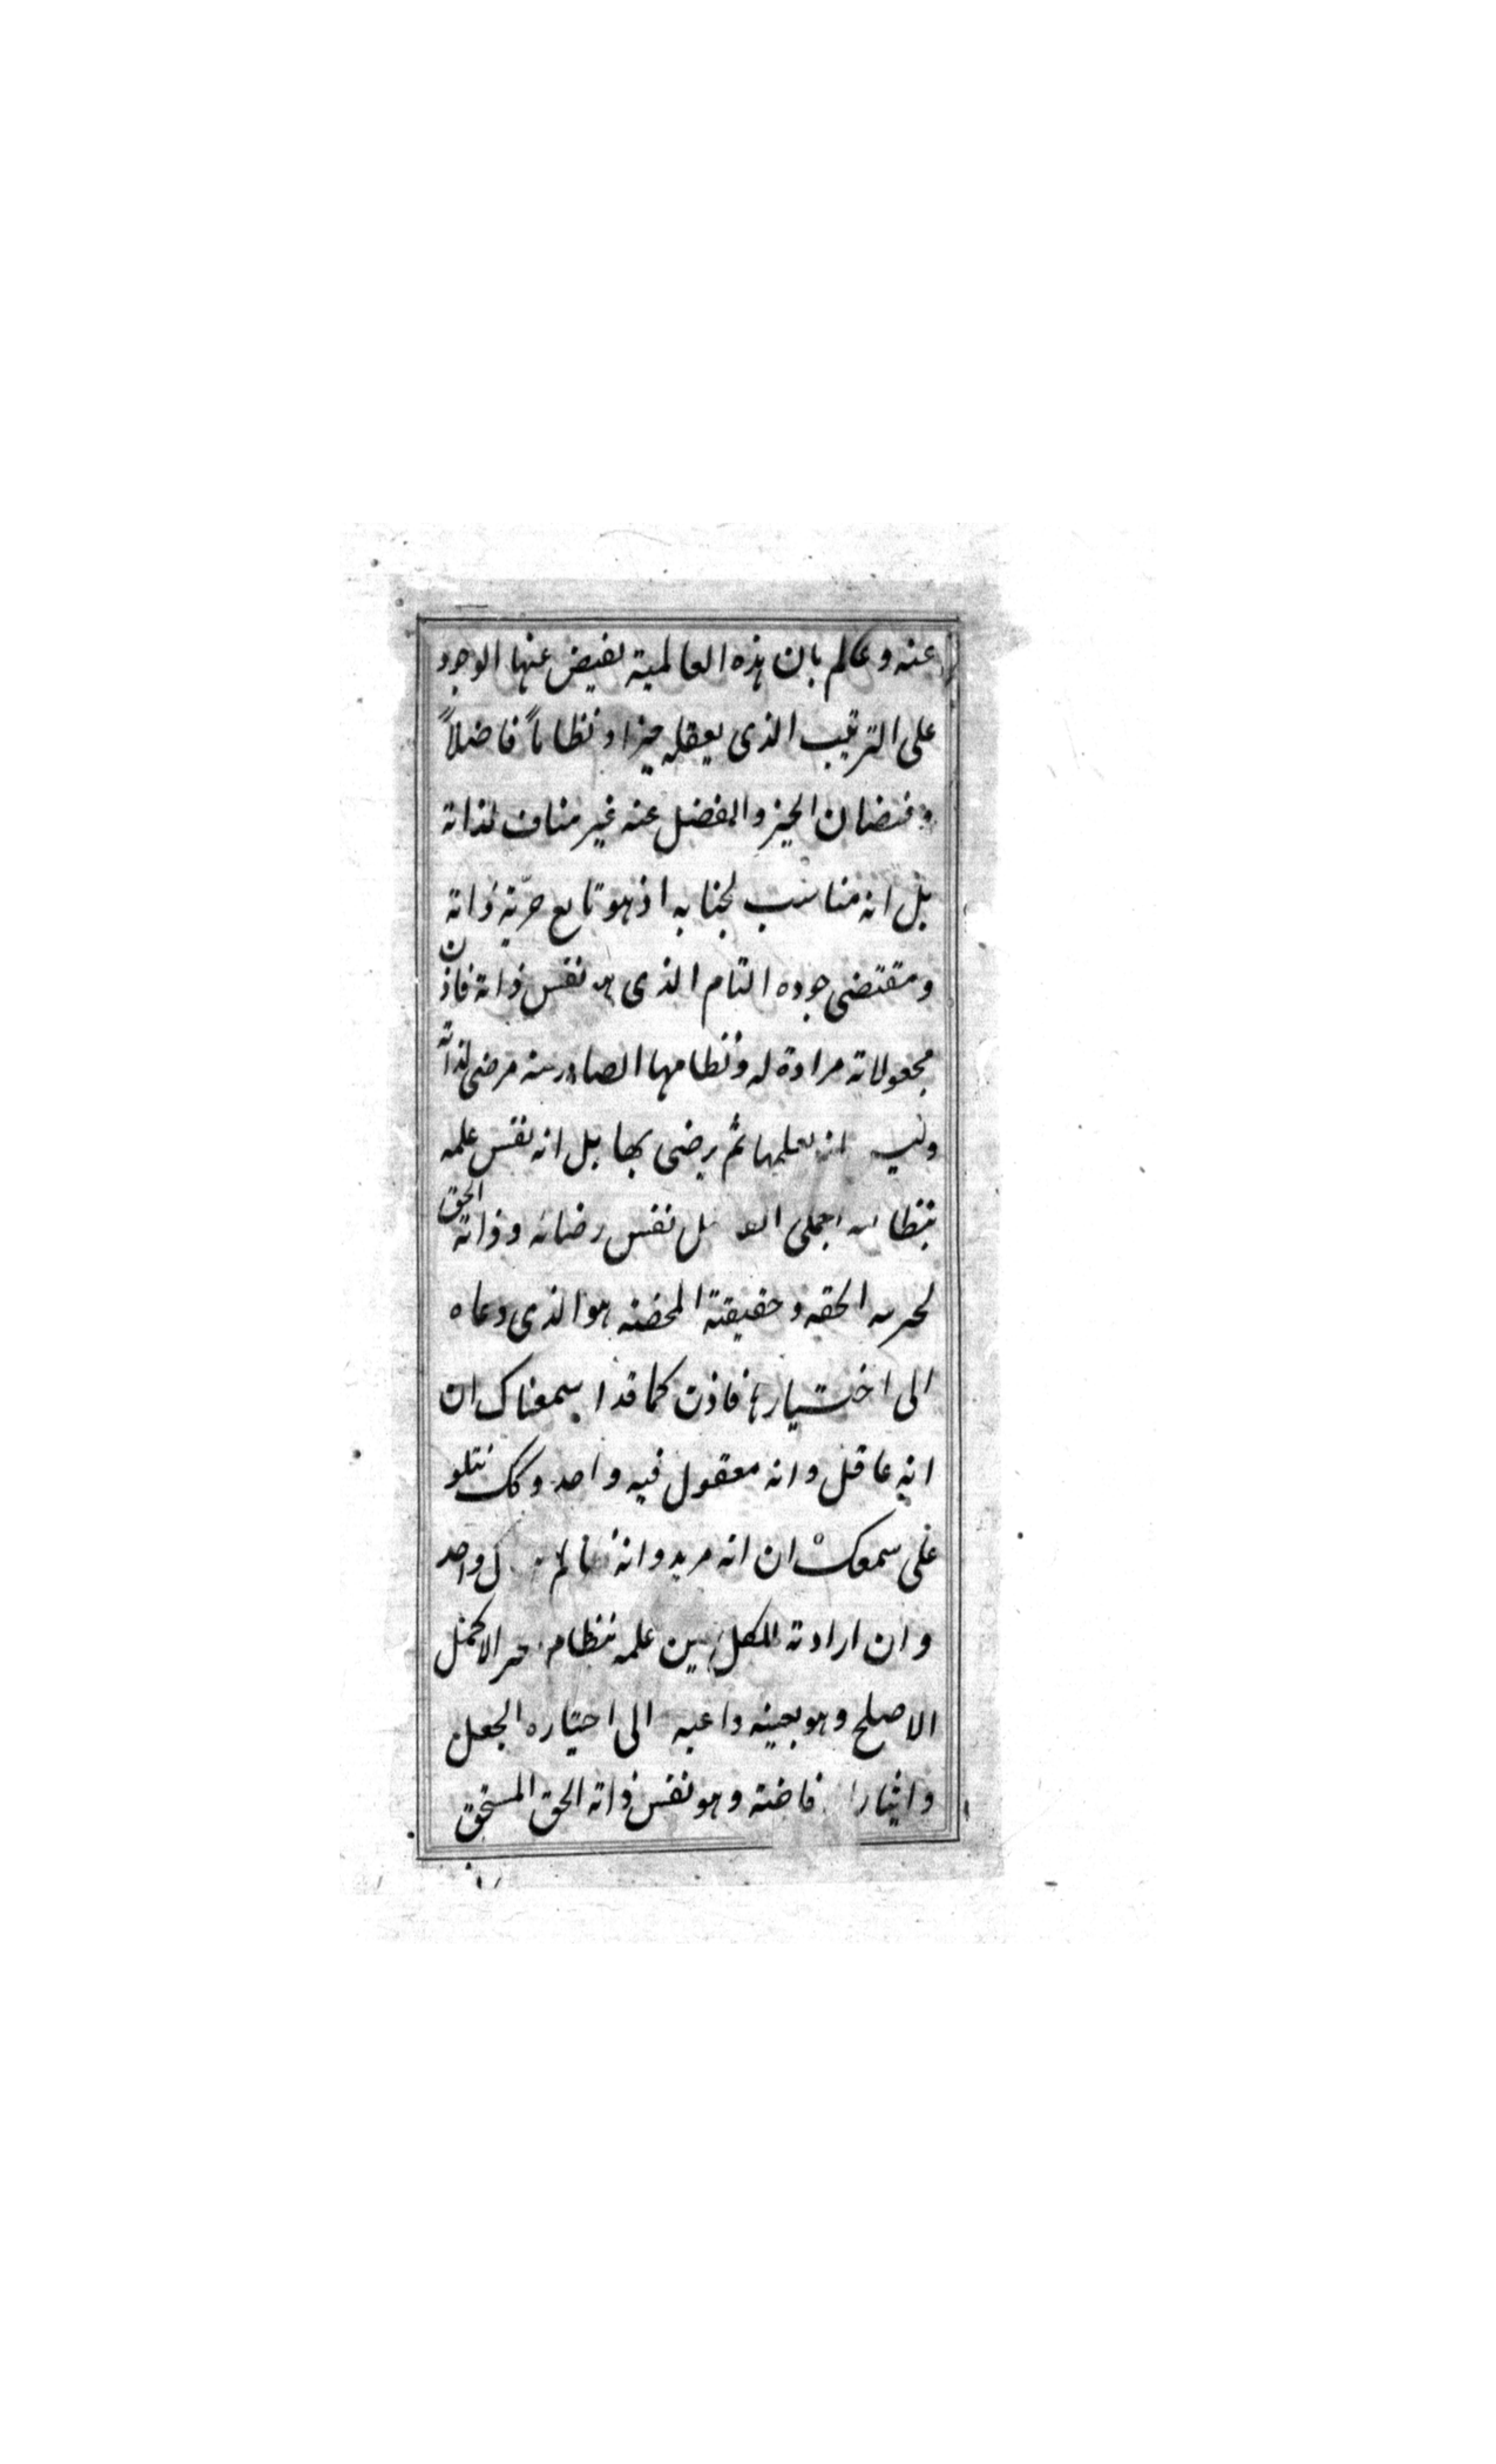 عنه وعالم بان هذه العالمية يفيض عنها الوجود
على الترتيب الذى يعقله خيرا ونظاماً فاضلاً
وفيضان الخير والفضل عنه غير مناف لذاته
بل انه مناسب لجنابه اذ هو تابع خيرية ذاته
ومقتضى جوده التام الذى هو نفس ذاته فاذن
مجعولاته مرادة له ونظامها الصادر منه مرضى لذاته
وليس انه يعلمها ثم يرضى بها بل انه نفس علمه
بنظامه نفس رضائه وذاته الحق
الحقه وحقيقته المحضه هو الذى دعاه
الى اختيارها فاذن كما قد اسمعناك ان
انه عاقل وانه معقول فيه واحد وكك نتلو
على سمعك ان انه مريد وانه عالم واحد
وان ارادته للكل عين علمه بنظام الاكمل
الاصلح وهو بعينه داعيه الى اختياره الجعل
وايثار فاضته وهو نفس ذاته الحق المستحق